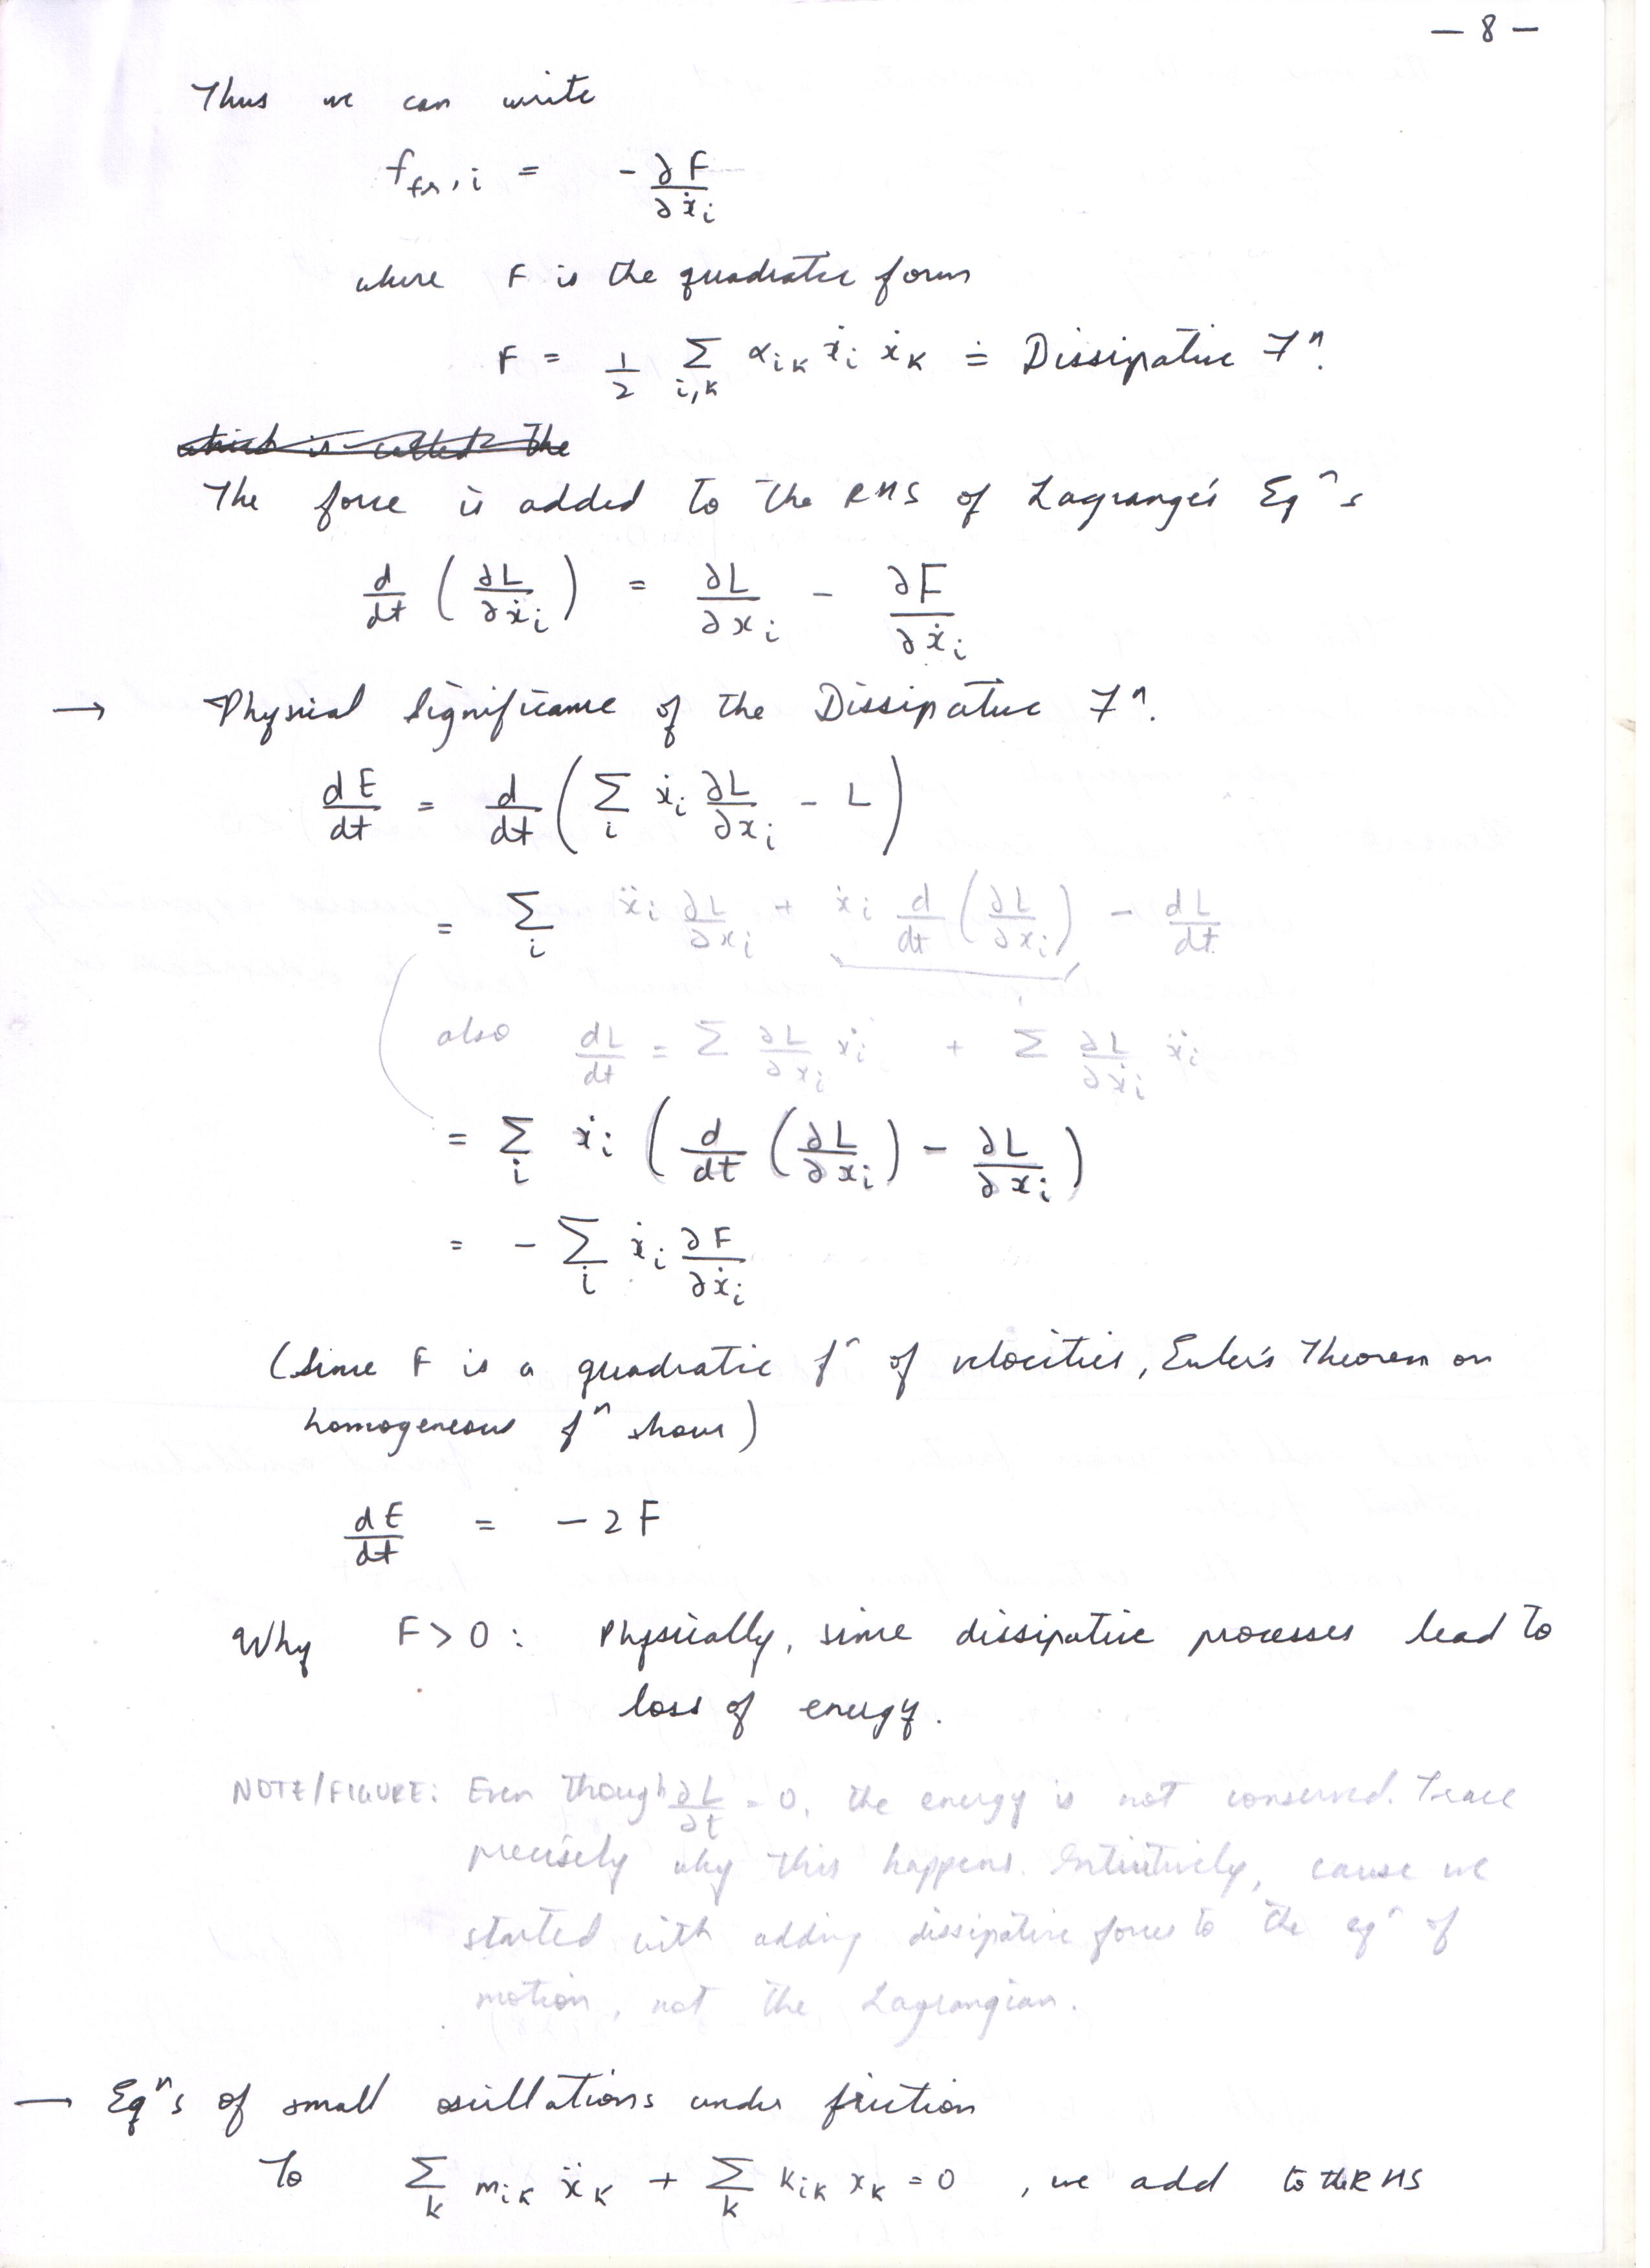 — 8 —
Thus we can write
f_{fr,i} = - ∂F/∂ẋ_i
where F is the quadratic form
F = 1/2 Σ_{i,k} α_{ik} ẋ_i ẋ_k ≐ Dissipative Fⁿ.
which is called the
The force is added to the RHS of Lagrange's Eqⁿs
d/dt (∂L/∂ẋ_i) = ∂L/∂x_i - ∂F/∂ẋ_i
→ Physical Significance of the Dissipative Fⁿ.
dE/dt = d/dt (Σ_i ẋ_i ∂L/∂x_i - L)
= Σ_i ẍ_i ∂L/∂x_i + ẋ_i d/dt (∂L/∂x_i) - dL/dt
also dL/dt = Σ ∂L/∂x_i ẋ_i + Σ ∂L/∂ẋ_i ẍ_i
= Σ_i ẋ_i (d/dt (∂L/∂x_i) - ∂L/∂x_i)
= - Σ_i ẋ_i ∂F/∂ẋ_i
(Since F is a quadratic fⁿ of velocities, Euler's Theorem on
homogeneous fⁿ shows)
dE/dt = - 2F
Why F > 0 : Physically, since dissipative processes lead to
loss of energy.
NOTE/FIGURE: Even though ∂L/∂t = 0, the energy is not conserved. Trace
precisely why this happens. Intuitively, cause we
started with adding dissipative forces to the eqⁿ of
motion, not the Lagrangian.
— Eqⁿs of small oscillations under friction
To Σ_k m_{ik} ẍ_k + Σ_k k_{ik} x_k = 0 , we add to the RHS